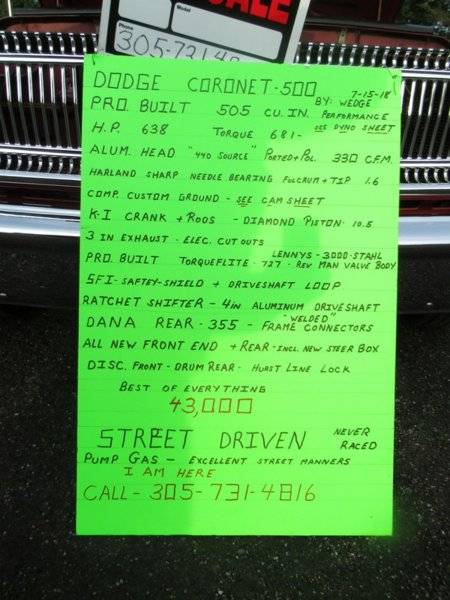 SALE
Model
Phone
305-731-4
DODGE CORONET-500 7-15-18
PRO BUILT 505 CU. IN. BY: WEDGE PERFORMANCE
H.P. 638 TORQUE 681- SEE DYNO SHEET
ALUM. HEAD "440 SOURCE" PORTED+POL. 330 C.F.M.
HARLAND SHARP NEEDLE BEARING FULCRUM+TIP 1.6
COMP. CUSTOM GROUND - SEE CAM SHEET
K-I CRANK + RODS - DIAMOND PISTON. 10.5
3 IN EXHAUST - ELEC. CUT OUTS
PRO. BUILT TORQUEFLITE - 727 - LENNYS - 3000-STAHL REV MAN VALVE BODY
SFI-SAFTEY-SHIELD + DRIVESHAFT LOOP
RATCHET SHIFTER - 4IN ALUMINUM DRIVESHAFT
DANA REAR - 355 - "WELDED" FRAME CONNECTORS
ALL NEW FRONT END + REAR-INCL. NEW STEER BOX
DISC. FRONT - DRUM REAR - HURST LINE LOCK
BEST OF EVERYTHING
43,000
STREET DRIVEN NEVER RACED
PUMP GAS - EXCELLENT STREET MANNERS
I AM HERE
CALL - 305-731-4816